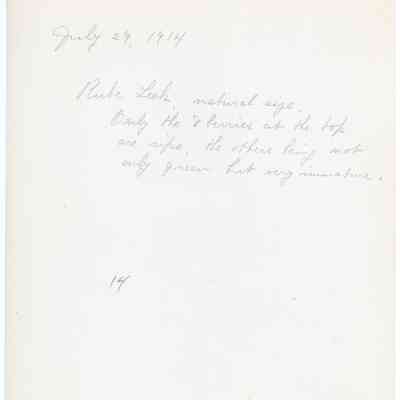 July 29, 1914
Rube Leek, natural size.
Only the 8 berries at the top
are ripe, the others being not
only green but very immature.
14